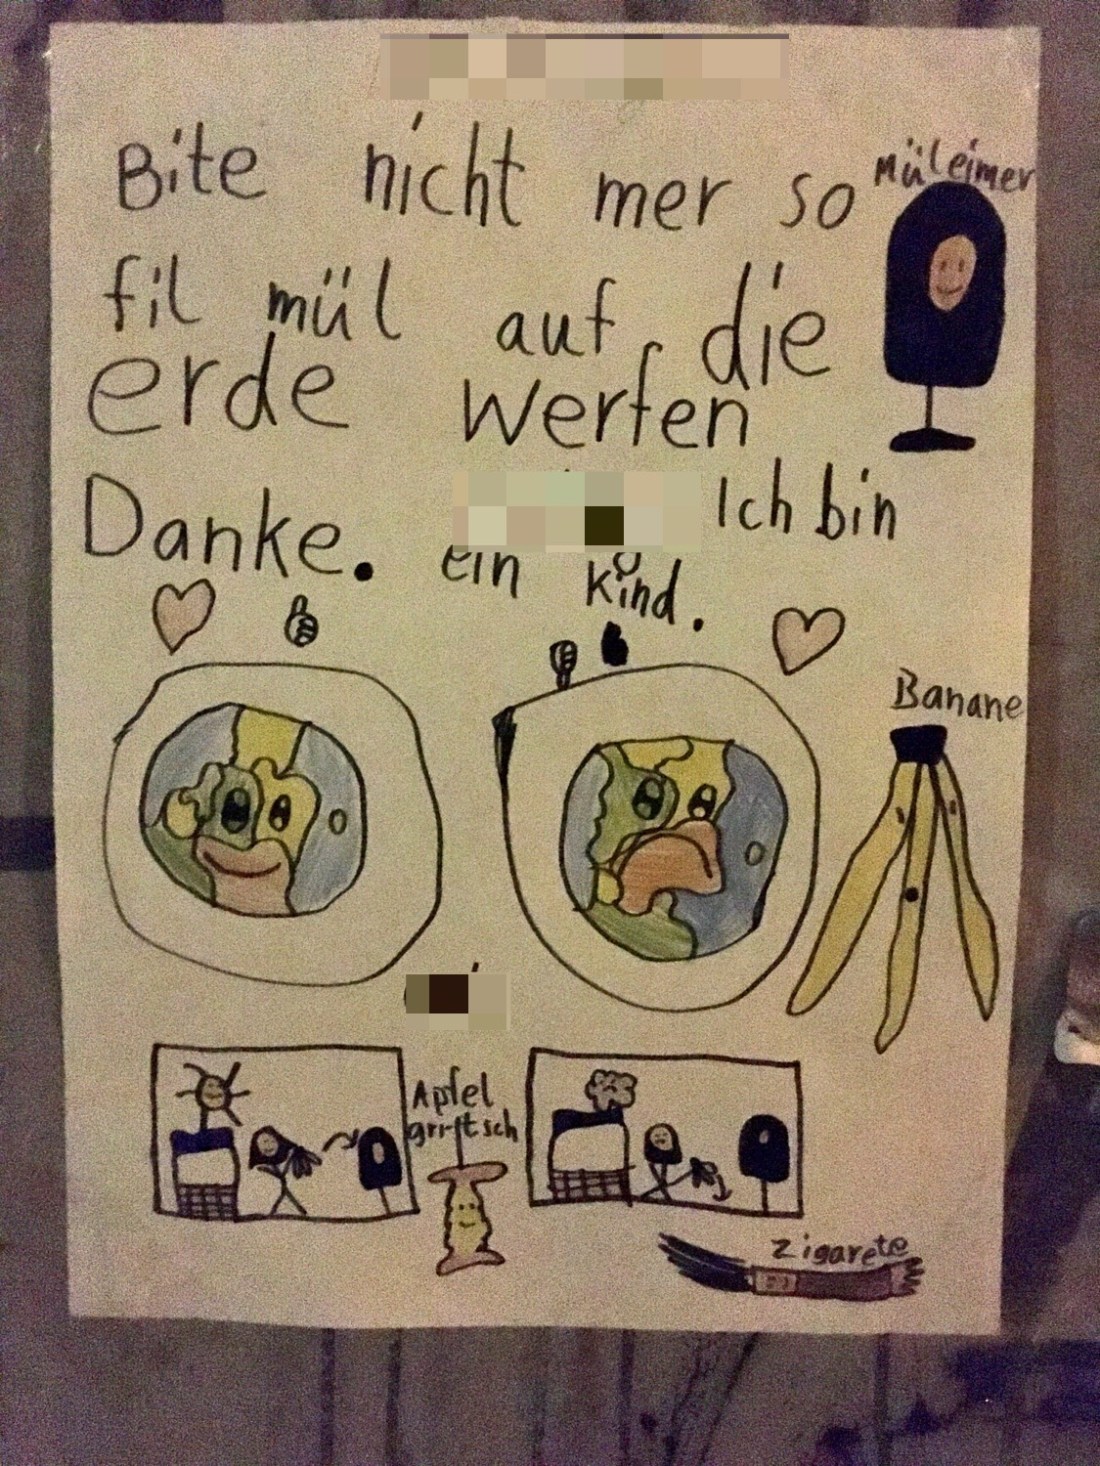 Bite nicht mer so
Müleimer
fil mül auf die
erde werfen
Danke. Ich bin
ein Kind.
Banane
Apfel
grrtsch
Zigarete